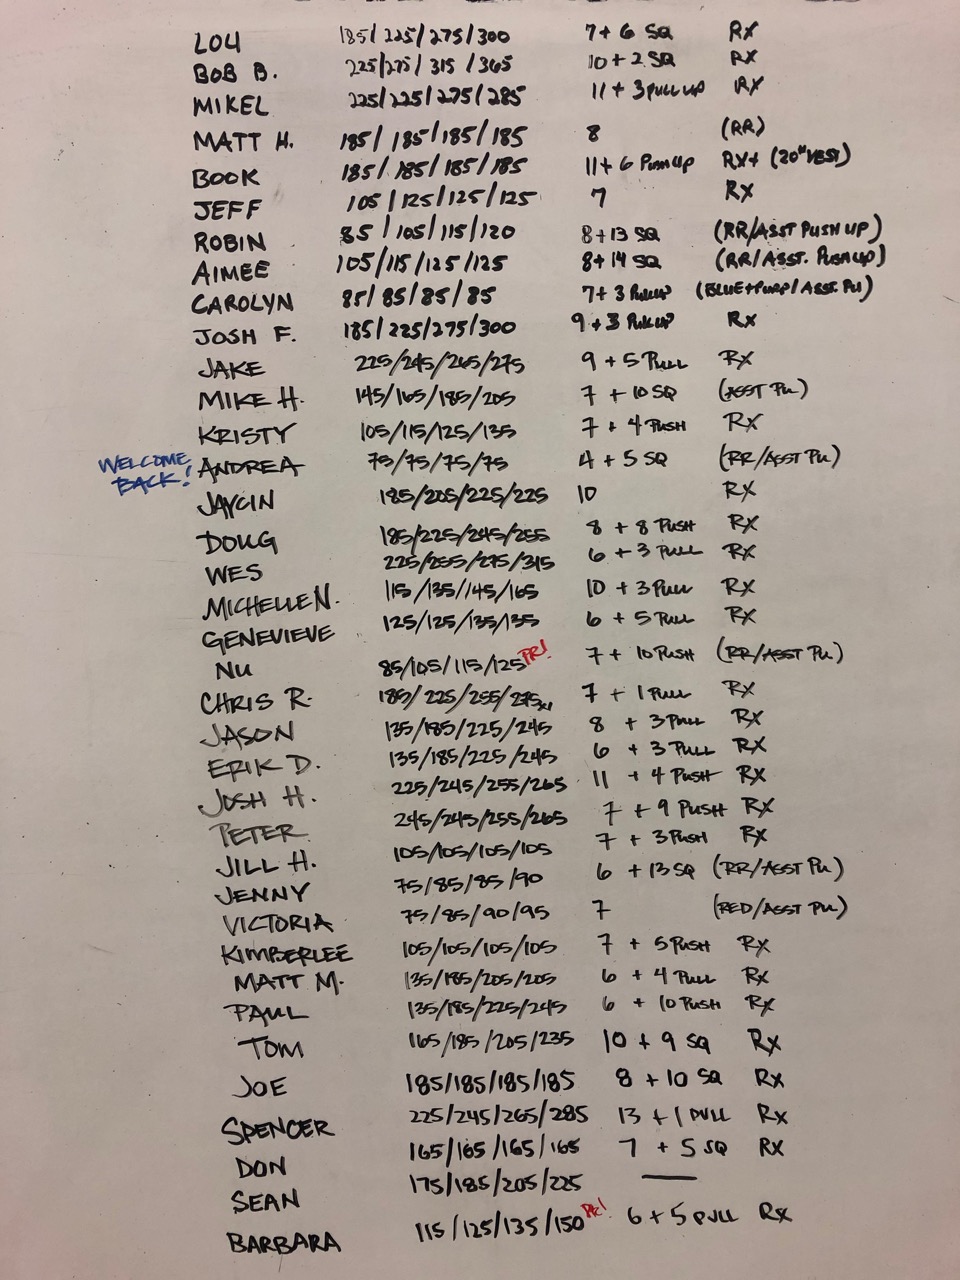 LOU 185/225/275/300 7+6 SQ RX
BOB B. 225/275/315/365 10+2 SQ RX
MIKEL 225/225/275/285 11+3 PULL UP RX
MATT H. 185/185/185/185 8 (RR)
BOOK 185/185/185/185 11+6 PUSH UP RX+ (20# VEST)
JEFF 105/125/125/125 7 RX
ROBIN 85/105/115/120 8+13 SQ (RR/ASST PUSH UP)
AIMEE 105/115/125/125 8+14 SQ (RR/ASST. PUSH UP)
CAROLYN 85/85/85/85 7+3 PULLUP (BLUE+PURP/ASST. PU)
JOSH F. 185/225/275/300 9+3 PULLUP RX
JAKE 225/245/265/275 9+5 PULL RX
MIKE H. 145/165/185/205 7+10 SQ (ASST PU)
KRISTY 105/115/125/135 7+4 PUSH RX
WELCOME BACK! ANDREA 75/75/75/75 4+5 SQ (RR/ASST PU)
JAYCIN 185/205/225/225 10 RX
DOUG 185/225/245/255 8+8 PUSH RX
WES 225/255/275/315 6+3 PULL RX
MICHELLE N. 115/135/145/165 10+3 PULL RX
GENEVIEVE 125/125/135/135 6+5 PULL RX
NU 85/105/115/125 PR! 7+10 PUSH (RR/ASST PU)
CHRIS R. 185/225/255/275x1 7+1 PULL RX
JASON 135/185/225/245 8+3 PULL RX
ERIK D. 135/185/225/245 6+3 PULL RX
JOSH H. 225/245/255/265 11+4 PUSH RX
PETER 245/245/255/265 7+9 PUSH RX
JILL H. 105/105/105/105 7+3 PUSH RX
JENNY 75/85/85/90 6+13 SQ (RR/ASST PU)
VICTORIA 75/85/90/95 7 (RED/ASST PU)
KIMBERLEE 105/105/105/105 7+5 PUSH RX
MATT M. 135/185/205/205 6+4 PULL RX
PAUL 135/185/225/245 6+10 PUSH RX
TOM 165/185/205/235 10+9 SQ RX
JOE 185/185/185/185 8+10 SQ RX
SPENCER 225/245/265/285 13+1 PULL RX
DON 165/165/165/165 7+5 SQ RX
SEAN 175/185/205/225 —
BARBARA 115/125/135/150 PR! 6+5 PULL RX